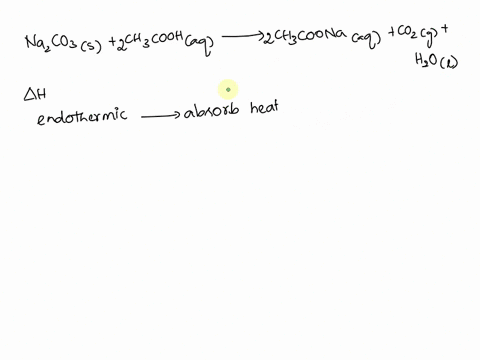 Na₂CO₃(s) + 2CH₃COOH(aq) ⟶ 2CH₃COONa(aq) + CO₂(g) +
H₂O(l)
ΔH
endothermic ⟶ absorb heat